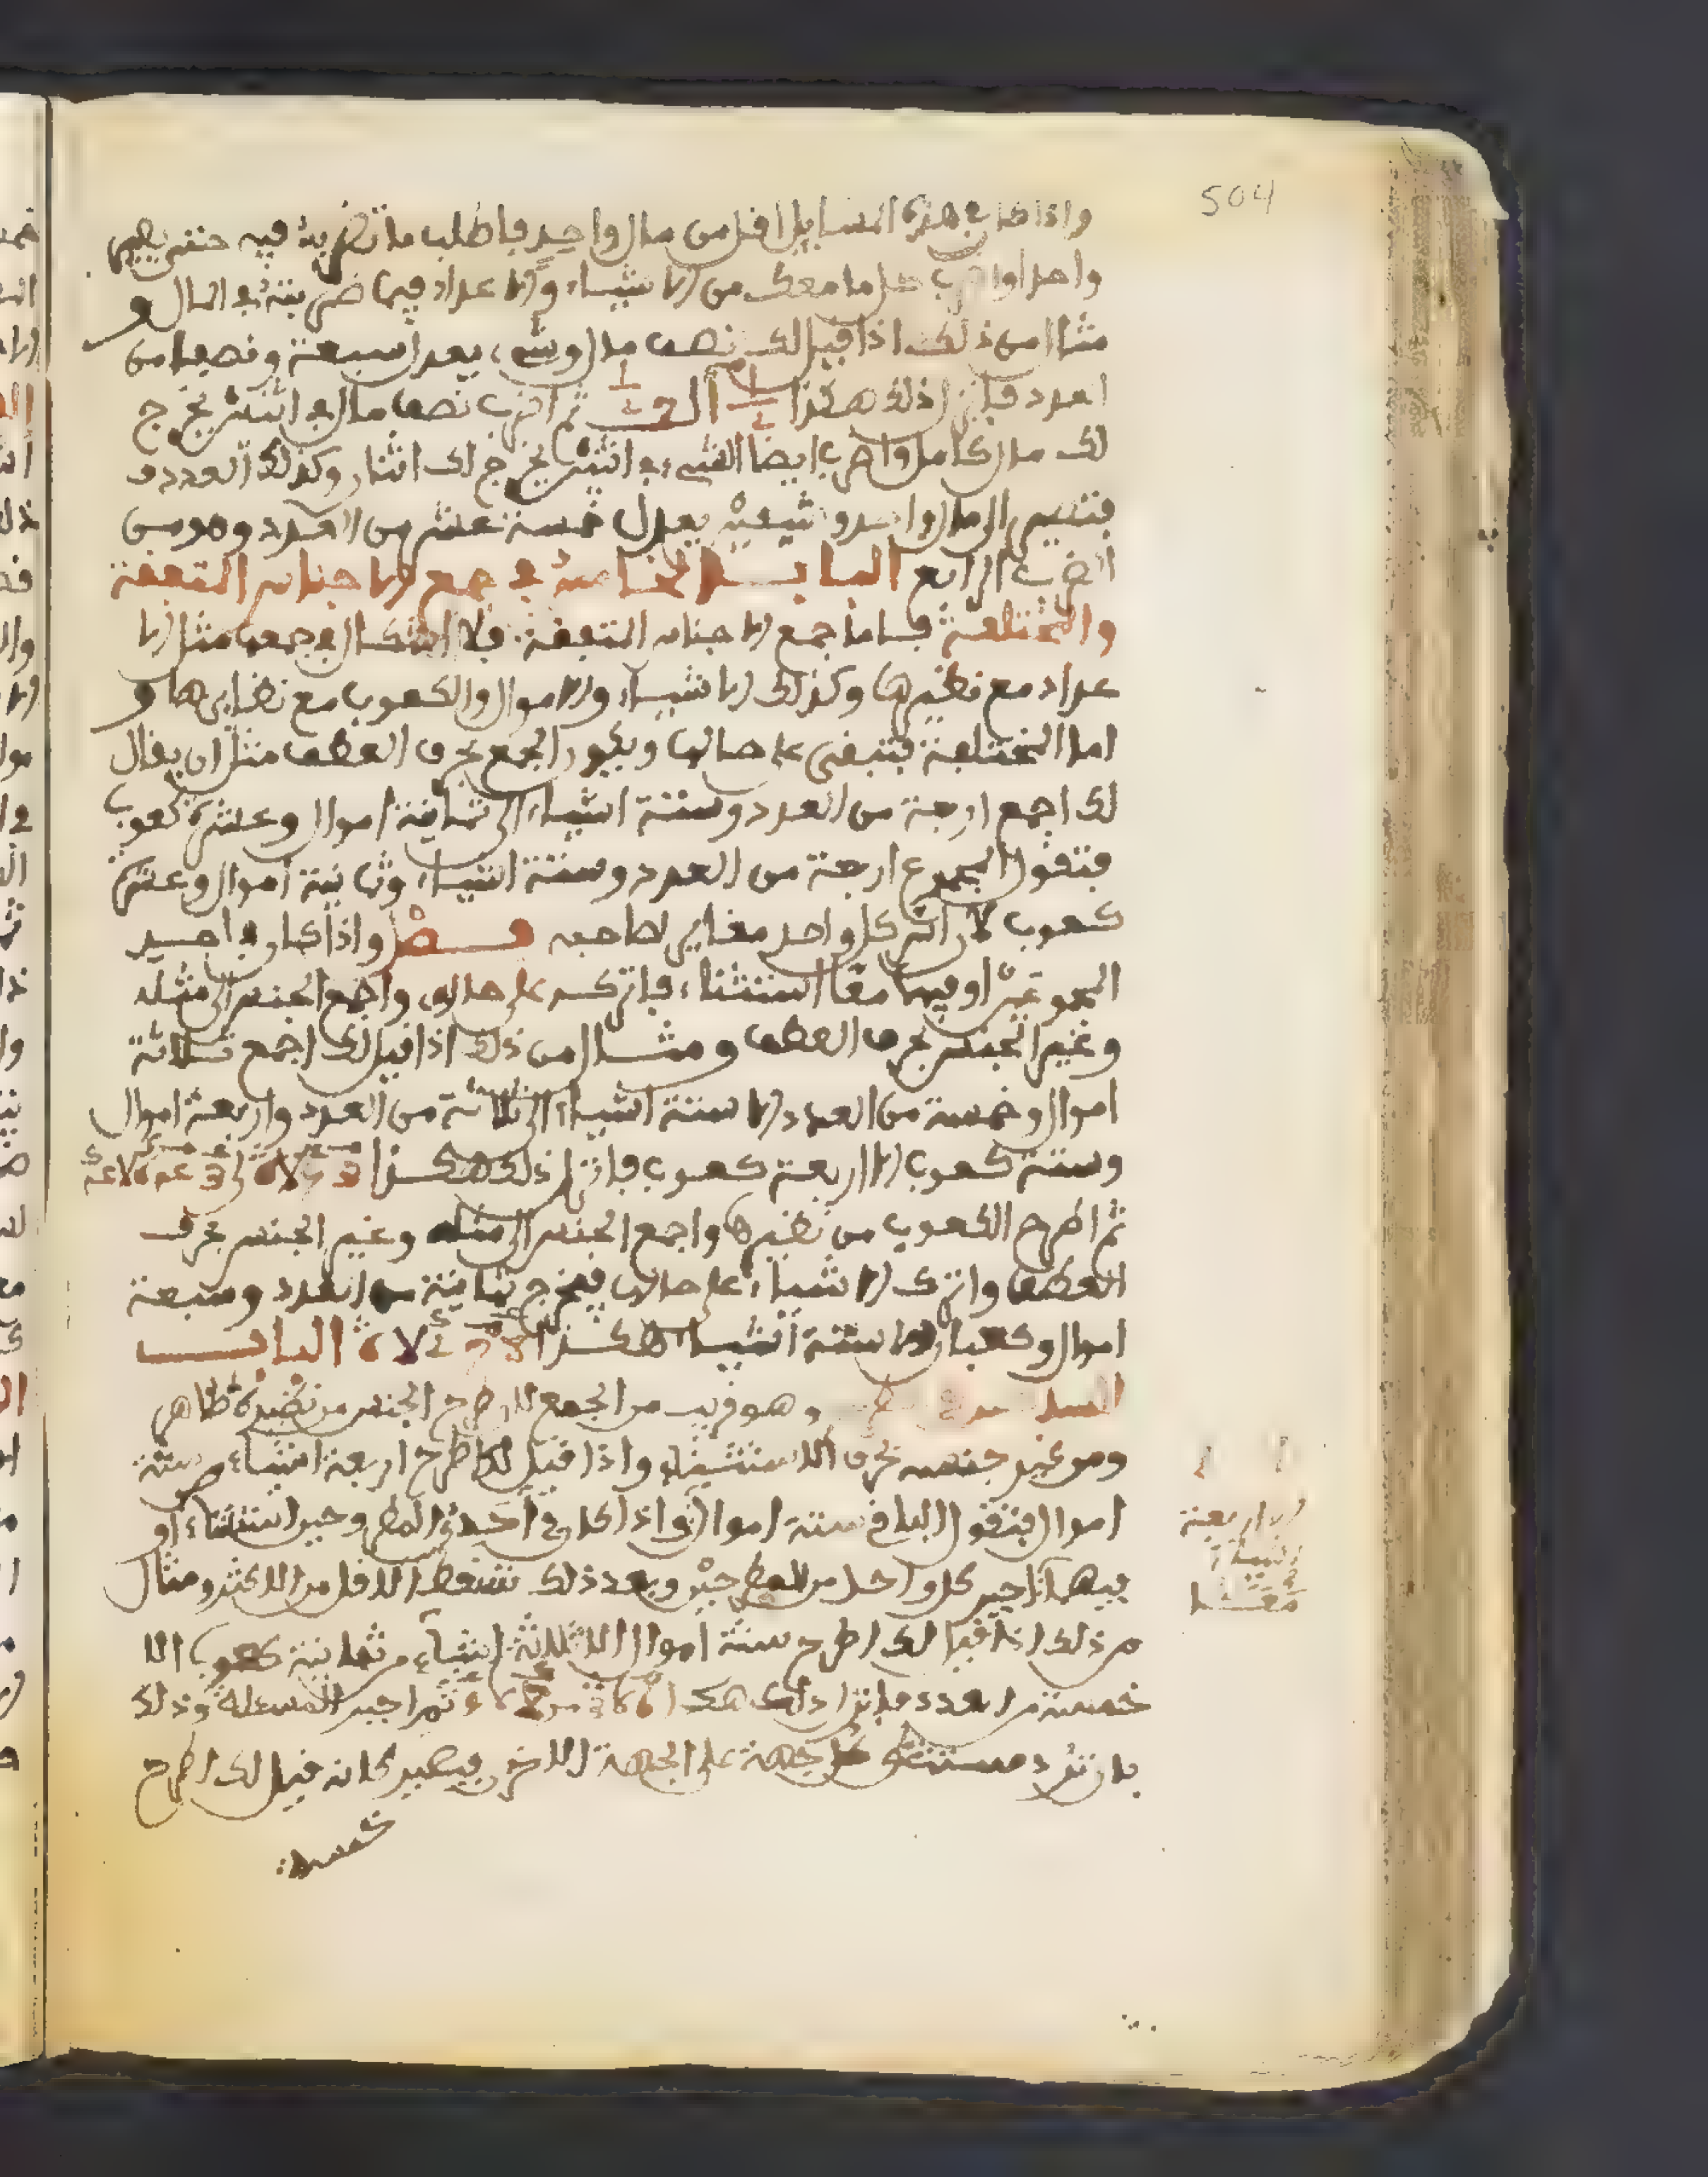 504
واذا كان في هذه المسايل اقل من مال واحد فاطلب ما تضربه فيه حتى يصير
واحدا واضرب كل ما معك من الاشياء والاعداد فيما ضربته في المال و
مثال من ذلك اذا قيل لك نصف مال وشيء يعدل سبعة ونصفا من
العدد فانزل ذلك هكذا ثم اضرب نصف مال في اثنين يخرج
لك مال كامل واضرب ايضا الشيء في اثنين يخرج لك اثنان وكذلك العدد
فتصير الى مال واحد وشيئين يعدل خمسة عشر من العدد وهو من
الضرب الرابع الباب الخامس في جمع الاجناس المتفقة
والمختلفة فاما جمع الاجناس المتفقة فلا اشكال في جمعها مثل الا
عداد مع نظيرها وكذلك الاشياء والاموال والكعوب مع نظايرها و
اما المختلفة فتبقى على حالها ويكون الجمع بحرف العطف مثل ان يقال
لك اجمع اربعة من العدد وستة اشياء الى ثمانية اموال وعشرة كعوب
فتقول المجموع اربعة من العدد وستة اشياء وثمانية اموال وعشرة
كعوب لان كل واحد مغاير لصاحبه فصل واذا كان في احد
المجموعين او فيهما معا استثناء فاتركه على حاله واجمع الجنس الى مثله
وغير الجنس بحرف العطف ومثال من ذلك اذا قيل لك اجمع ثلاثة
اموال وخمسة من العدد الا ستة اشياء الى ثلاثة من العدد واربعة اموال
وستة كعوب الا اربعة كعوب فانزل ذلك هكذا
ثم اطرح الكعوب من نظيرها واجمع الجنس الى مثله وغير الجنس بحرف
العطف واترك الاشياء على حالها فيخرج ثمانية من العدد وسبعة
اموال وكعبان الا ستة اشياء هكذا الباب
وهو قريب من الجمع لان طرح الجنس من نظيره ظاهر
ومن غير جنسه بحرف الاستثناء واذا قيل لك اطرح اربعة اشياء من ستة
اموال فتقول الباقي ستة اموال واذا كان في احد المطروحين استثناء او
فيهما فاجبر كل واحد من المطروحين وبعد ذلك تسقط الاقل من الاكثر ومثال
من ذلك اذا قيل لك اطرح ستة اموال الا ثلاثة اشياء من ثمانية كعوب الا
خمسة من العدد فانزل ذلك هكذا ثم اجبر المسئلة وذلك
بان تزيد مستثنى كل جهة على الجهة الاخرى فيصير كانه قيل لك اطرح
خمسة
الا اربعة
اشياء